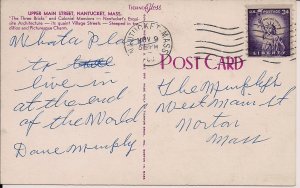 UPPER MAIN STREET, NANTUCKET, MASS.
"The Three Bricks" and Colonial Mansions in Nantucket's Exquisite Architecture — its quaint Village Streets — Steeped in tradition and Picturesque Charm.
What a place
to
live in
at the end
of the World
Dave Murphy
NANTUCKET MASS
NOV 9
PM
3¢
LIBERTY
POST CARD
The Murphys
West Main St
Norton
Mass